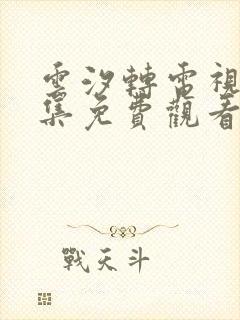 雲汐轉電視
集免費觀看
戰天斗